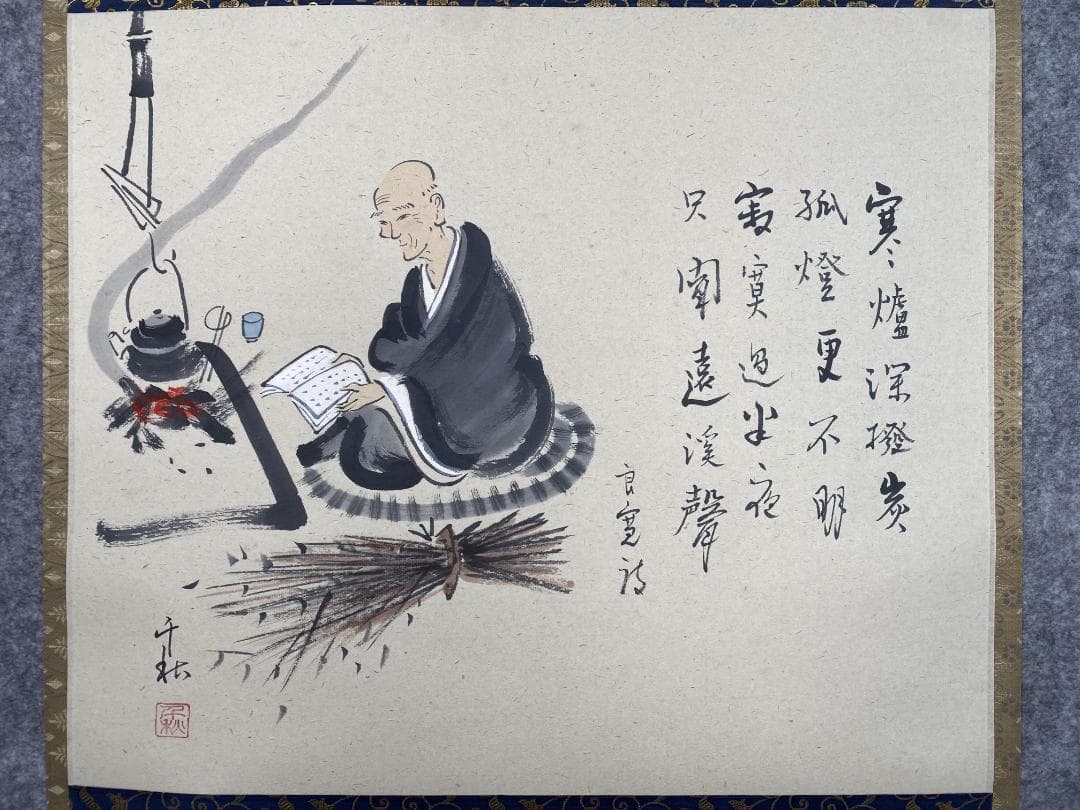 寒爐深撥炭
孤燈更不明
寂寞過半夜
只聞遠溪聲
良寛詩
千秋